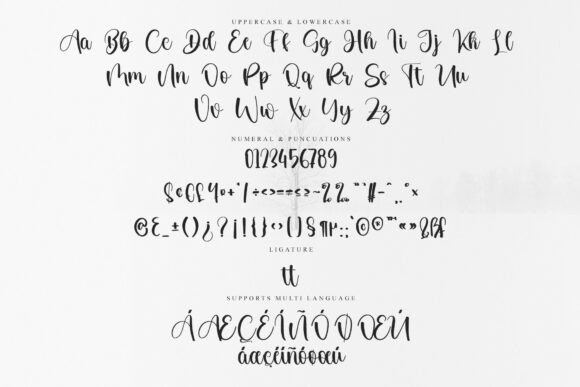 UPPERCASE & LOWERCASE
Aa Bb Cc Dd Ee Ff Gg Hh Ii Jj Kk Ll
Mm Nn Oo Pp Qq Rr Ss Tt Uu
Vv Ww Xx Yy Zz
NUMERAL & PUNCUATIONS
0123456789
$¢€£¥
@Æ_±()¿?¡!{}‹›[]§¶
LIGATURE
tt
SUPPORTS MULTI LANGUAGE
ÁÆÇÉÍÑÓØŒÚ
áæçéíñóøœú